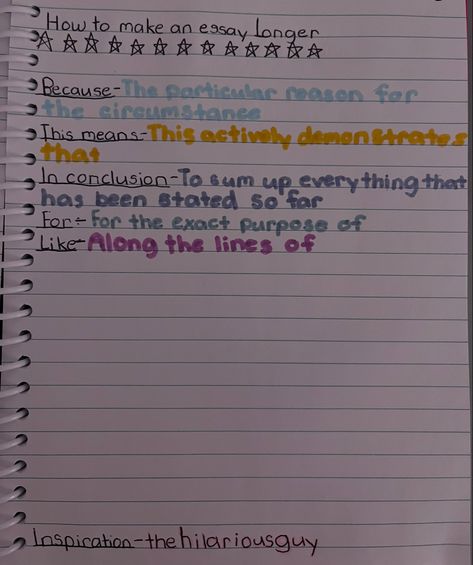 How to make an essay Longer
☆☆☆☆☆☆☆☆☆☆☆☆☆
Because-The particular reason for
the circumstance
This means-This actively demonstrates
that
In conclusion-To sum up everything that
has been stated so far
For-For the exact purpose of
Like-Along the lines of
Inspiration-thehilariousguy